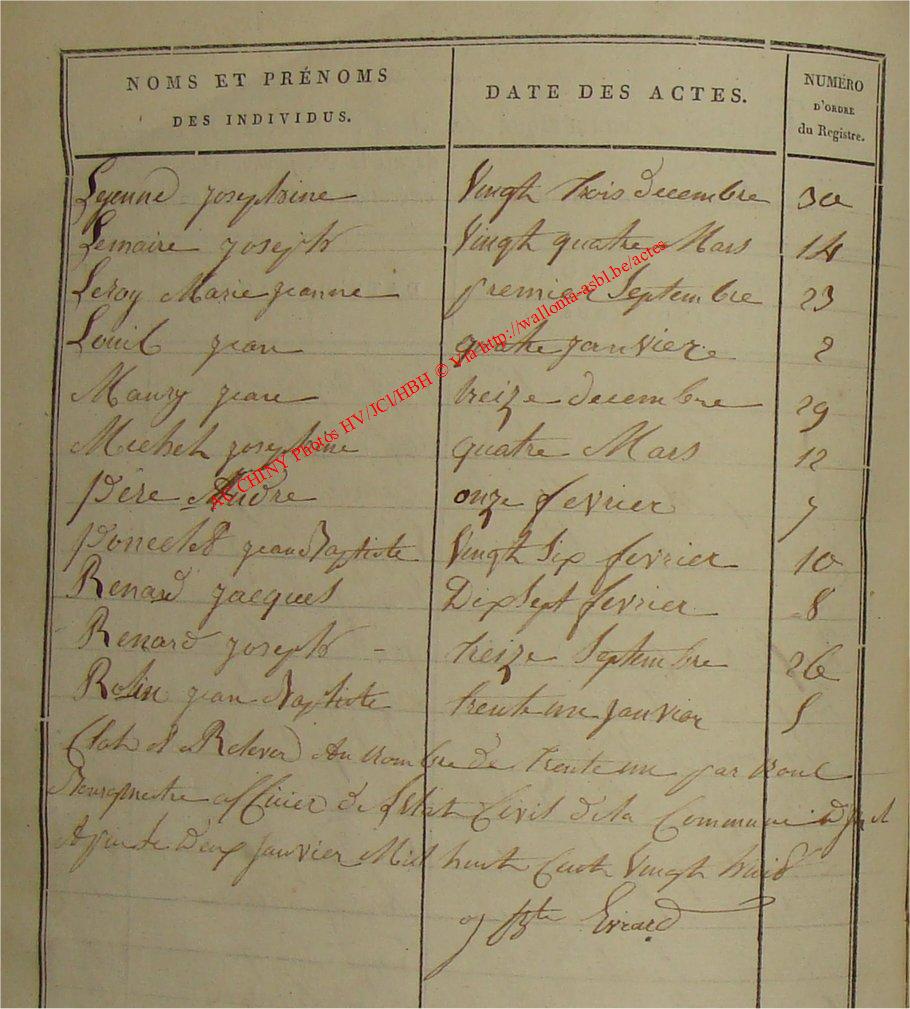 NOMS ET PRÉNOMS DES INDIVIDUS. DATE DES ACTES. NUMÉRO D'ORDRE du Registre.
Josephine Vingh trois decembre 30
Lemaire Joseph Vingh quatre Mars 14
Leroy Marie jeanne premier Septembre 23
Louis jean quatre janviere 2
Maury jean treize decembre 29
Michel josephine quatre Mars 12
Père Andre onze fevrier 7
Poncelet jean Baptiste Vingh Six fevrier 10
Renard jacques Dix Sept fevrier 8
Renard joseph treize Septembre 26
Rolin jean Baptiste trente un janvier 5
Clos et Relever Au nombre de trente un par nous
Bourgmestre officier de L'etat Civil de la Commune
deux janvier Mil huit Cent Vingh huit
j Bte Evrard
AC CHINY Photos HV/JCl/HBH © Via http://wallonia-asbl.be/actes